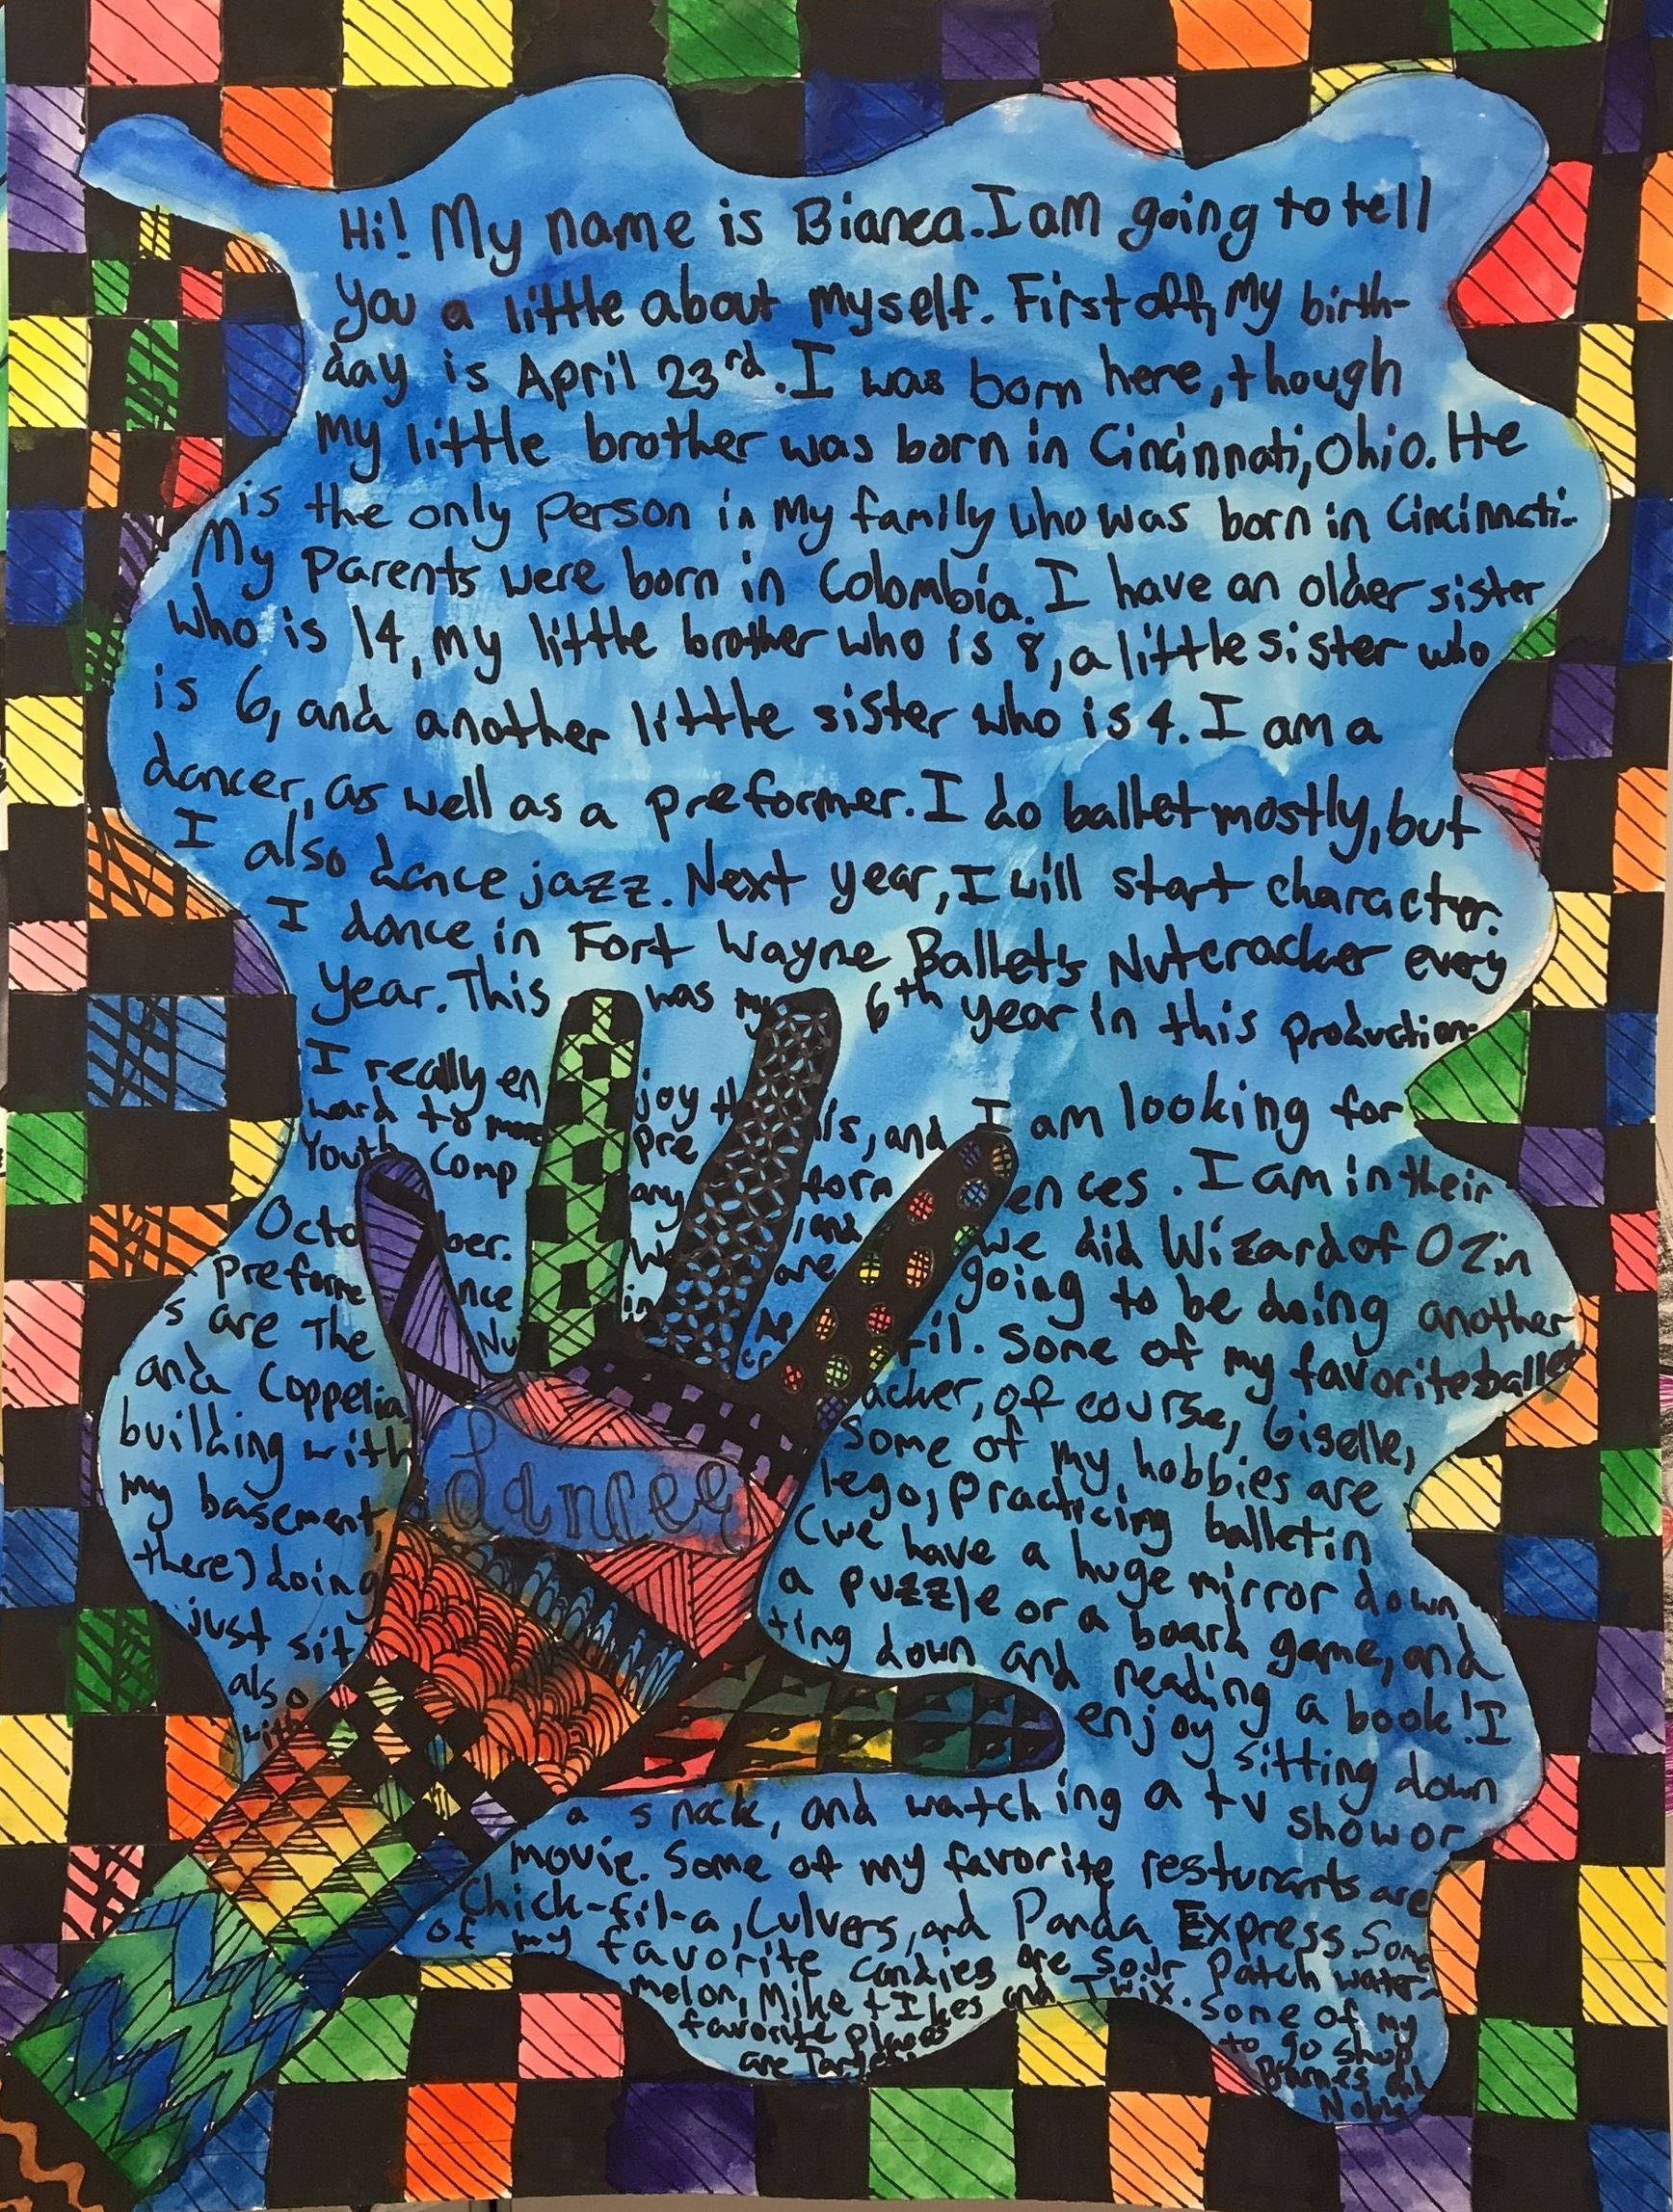 Hi! My name is Bianca. I am going to tell
you a little about myself. First off, my birth-
day is April 23rd. I was born here, though
my little brother was born in Cincinnati, Ohio. He
is the only person in my family who was born in Cincinnati.
My parents were born in Colombia. I have an older sister
who is 14, my little brother who is 8, a little sister who
is 6, and another little sister who is 4. I am a
dancer, as well as a preformer. I do ballet mostly, but
I also dance jazz. Next year, I will start character.
I dance in Fort Wayne Ballet's Nutcracker every
year. This was my 6th year in this production.
I really enjoy this, and I am looking for
ward to more preformences. I am in their
Youth Company, and we did Wizard of Oz in
October. We are going to be doing another
preformence in April. Some of my favorite ballet
s are The Nutcracker, of course, Giselle,
and Coppelia. Some of my hobbies are
building with lego, practicing ballet in
my basement (we have a huge mirror down
there) doing a puzzle or a board game, and
just sitting down and reading a book! I
also enjoy sitting down
with a snack, and watching a tv show or
movie. Some of my favorite resturants are
Chick-fil-a, Culvers, and Panda Express. Some
of my favorite candies are Sour Patch water-
melon, Mike + Ikes and Twix. Some of my
favorite places to go shop
are Target, Barnes and
Noble
dancer